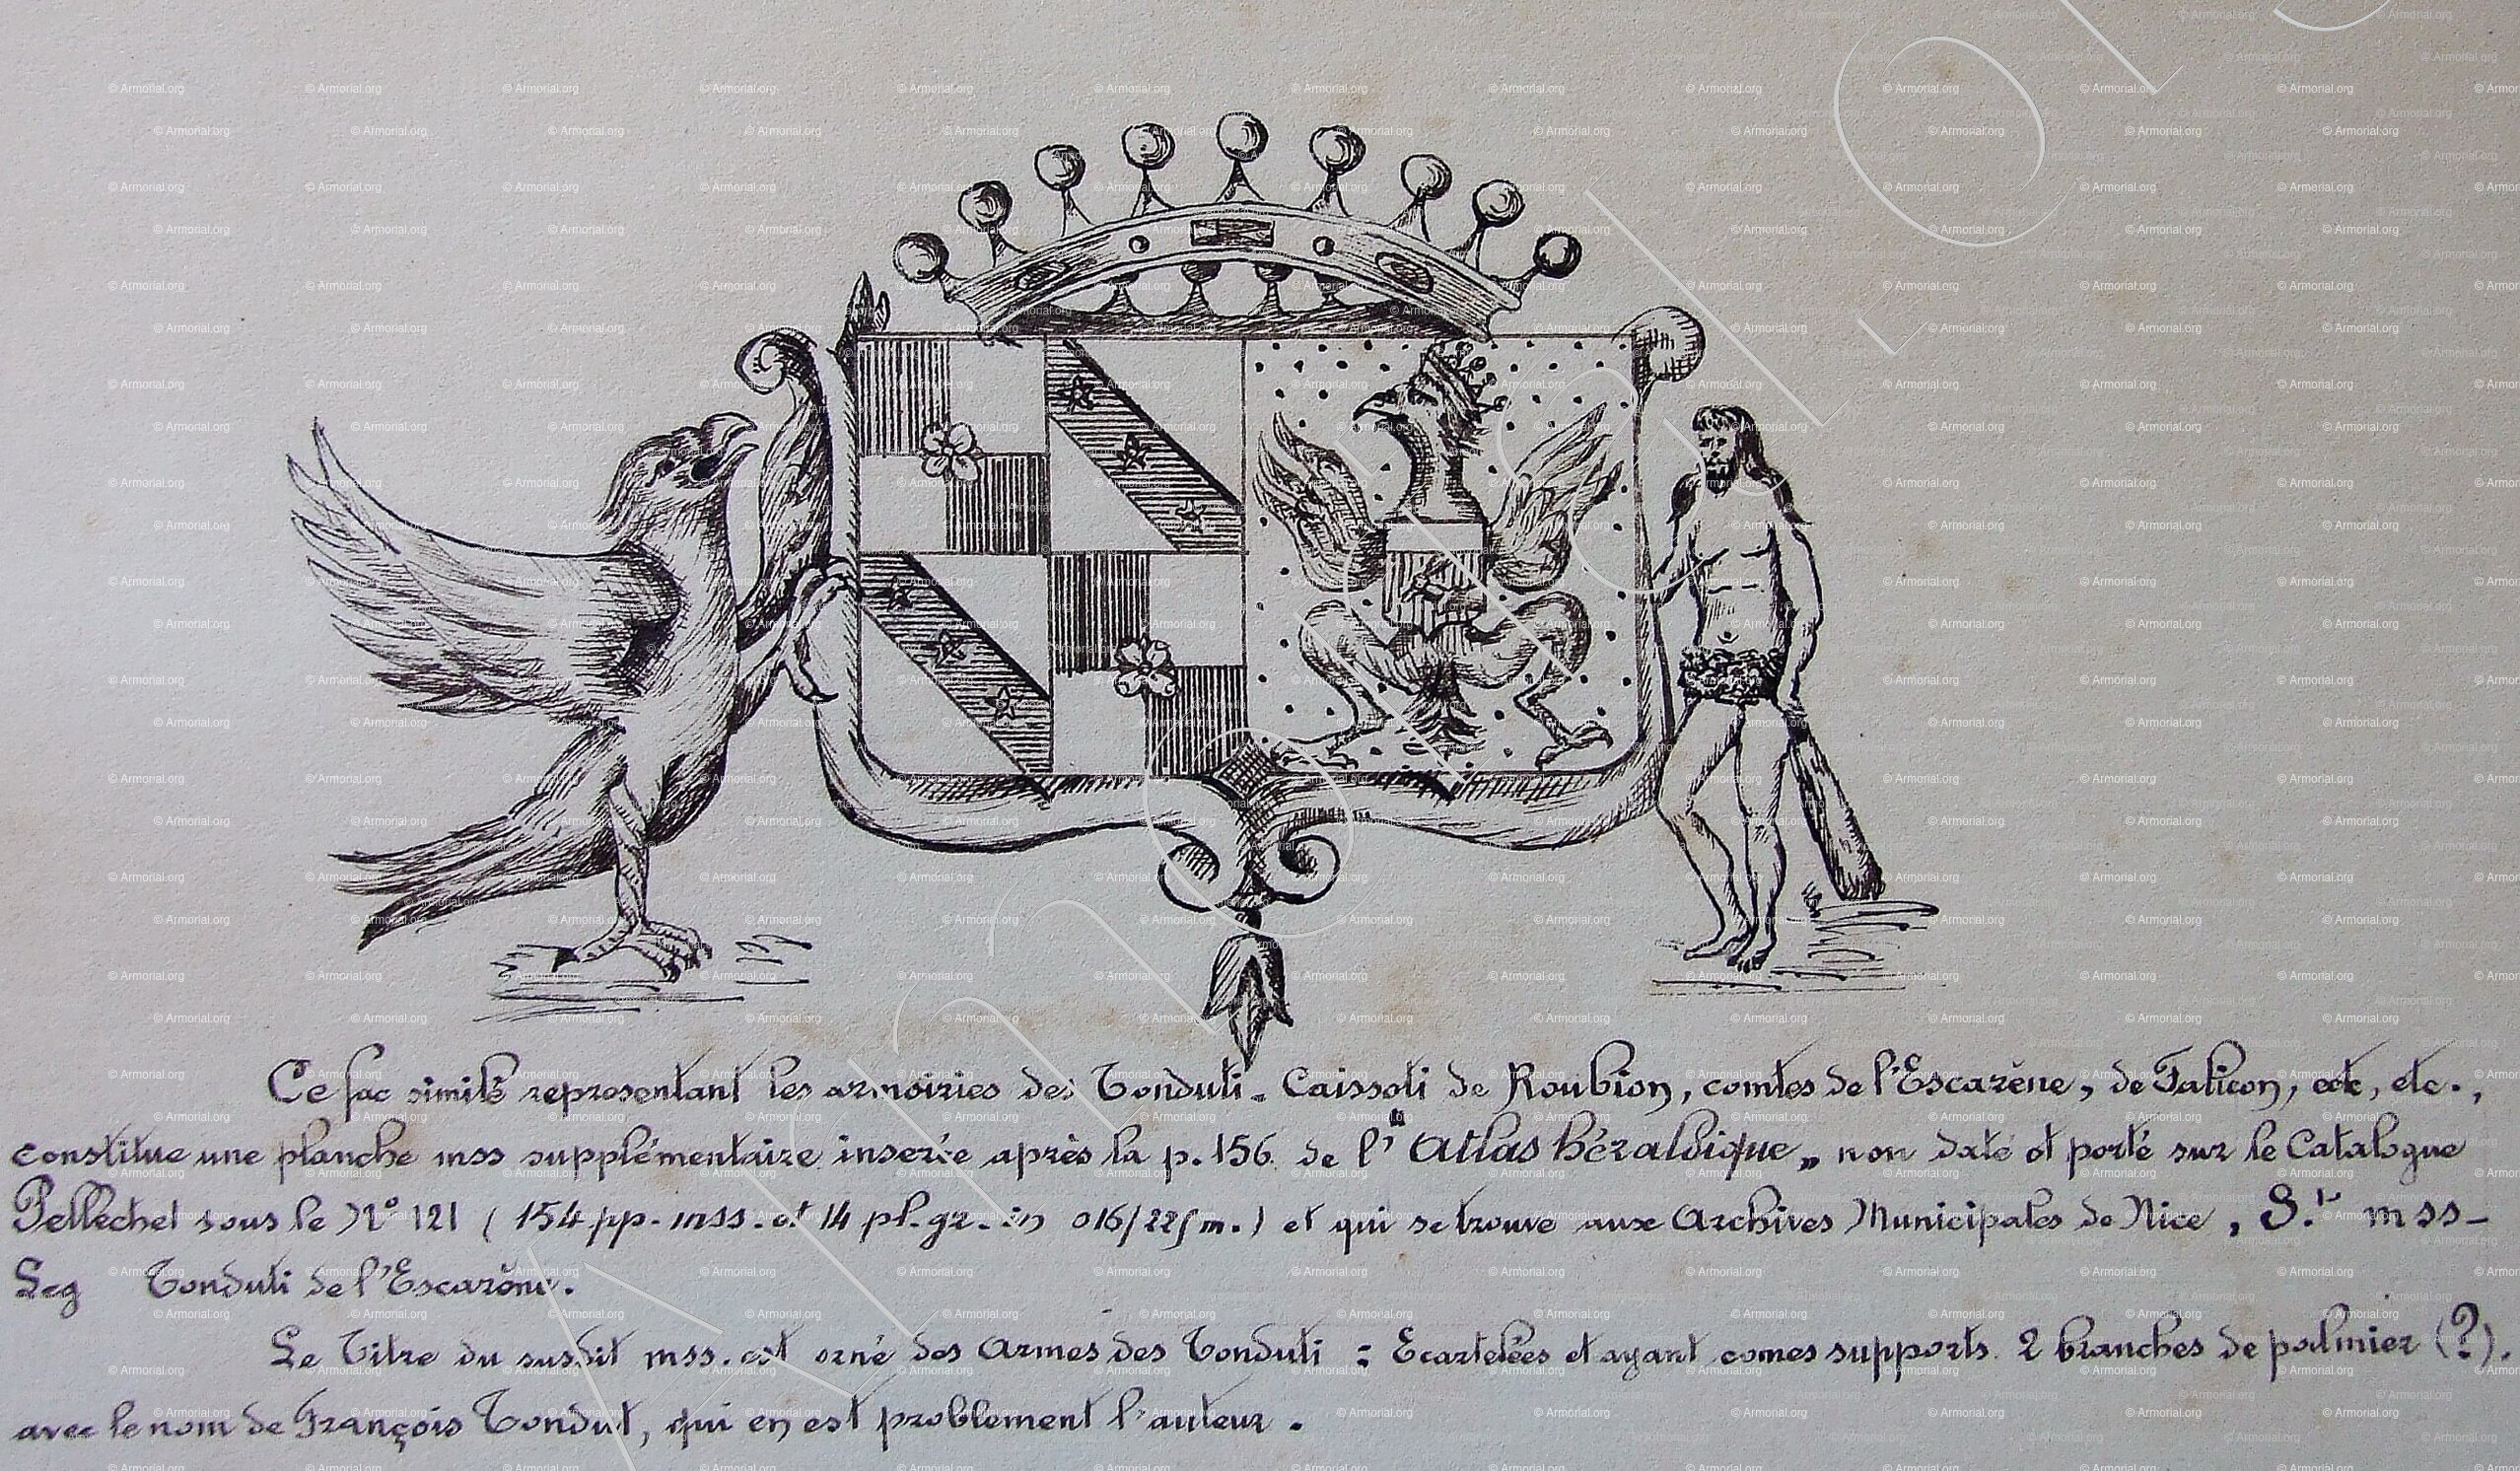 Ce fac similé representant les armoiries des Tonduti - Caissoti de Roubion, comtes de l'Escarène, de Falicon, ect, etc.,
constitue une planche mss supplémentaire inserée après la p. 156 de l' "Atlas héraldique„ non daté et porté sur le Catalogue
Pellechet sous le N° 121 ( 154 pp. mss. et 14 pl. gr. in 016/22 m.) et qui se trouve aux Archives Municipales de Nice, S.r mss-
Leg Tonduti de l'Escarène.
Le Titre du susdit mss. est orné des Armes des Tonduti : Ecartelées et ayant comes supports 2 branches de palmier (?).
avec le nom de François Tondut, qui en est problement l'auteur.
© Armorial.org